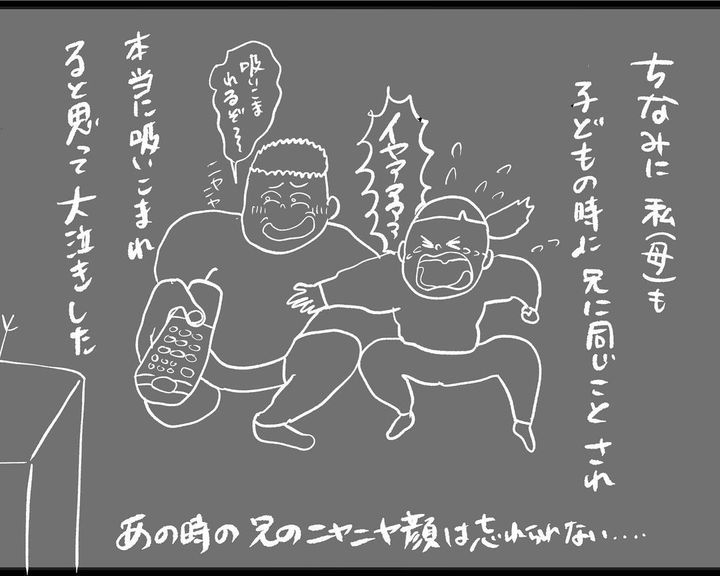 ちなみに 私(母)も
子どもの時に 兄に同じこと され
イヤァァァァ
吸いこま
れるぞ〜
ニヤニヤ
本当に吸いこまれ
ると思って 大泣きした
あの時の 兄のニヤニヤ顔は忘れられない....